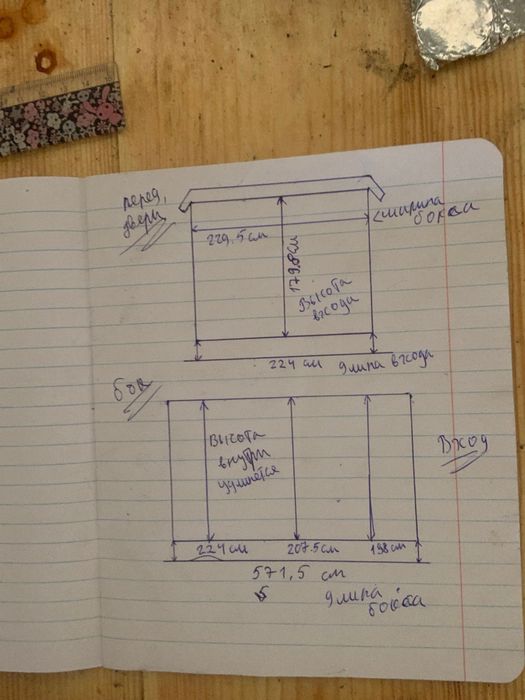 перед,
двери
ширина
бокса
229.5 см
179.8 см
Высота
входа
224 см длина входа
бок
Высота
внутри
удлиняется
Вход
224 см 207.5 см 198 см
571,5 см
5
длина
бокса